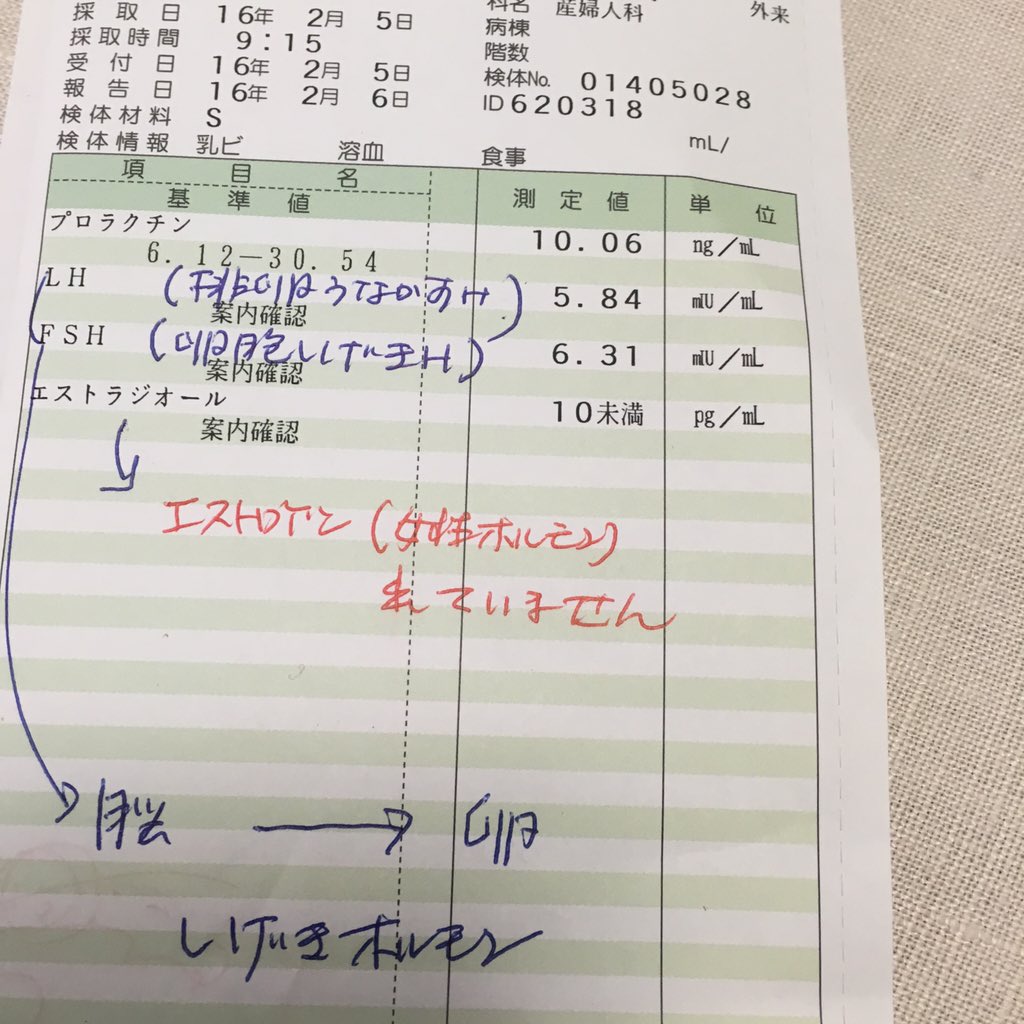 採取日 16年 2月 5日
採取時間 9:15
受付日 16年 2月 5日
報告日 16年 2月 6日
検体材料 S
検体情報 乳ビ 溶血 食事
科名 産婦人科 外来
病棟
階数
検体No. 01405028
ID 620318
mL/
項目名
基準値 測定値 単位
プロラクチン 10.06 ng/mL
6.12-30.54
LH (排卵うながすH) 5.84 mIU/mL
案内確認
FSH (卵胞しげきH) 6.31 mIU/mL
案内確認
エストラジオール 10未満 pg/mL
案内確認
エストロゲン (女性ホルモン)
出ていません
脳 → 卵
しげきホルモン